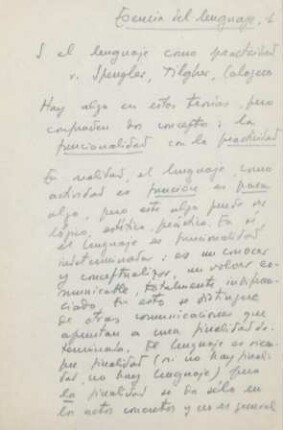 Esencia del lenguaje, 1
S el lenguaje como practicidad
v. Spengler, Tilgher, Calogero
Hay algo en estas teorías, pero
confunden dos conceptos: la
funcionalidad con la practicidad
En realidad, el lenguaje, como
actividad es función es para
algo, pero este algo puede ser
lógico, estético, práctico. En sí
el lenguaje es funcionalidad
indeterminada: es un conocer
y conceptualizar, un volver co-
municable, totalmente indiferen-
ciado. En esto se distingue
de otras comunicaciones que
apuntan a una finalidad de-
terminada. El lenguaje es siem-
pre finalidad (si no hay finali-
dad, no hay lenguaje) pero
la finalidad se da sólo en
los actos concretos y no es general